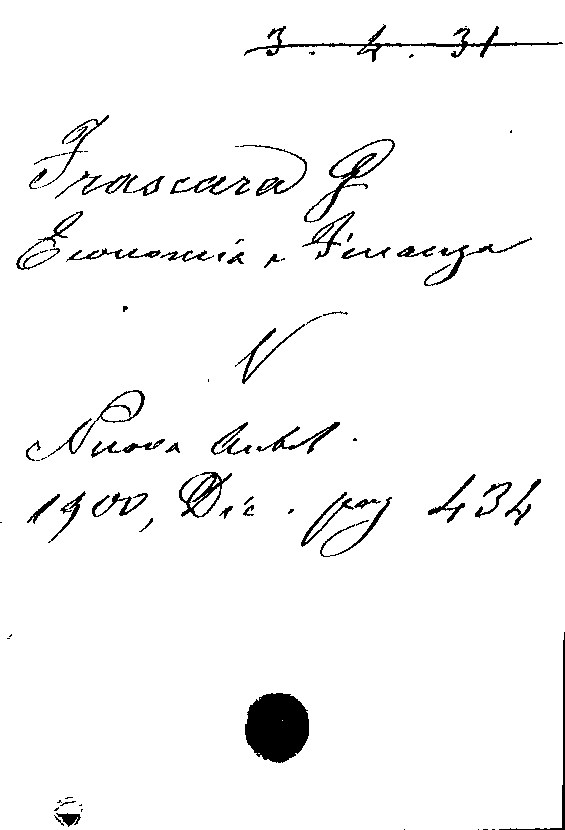 3. 4. 31
Frascara G
Economia e Finanza
V
Nuova Antol.
1900, Dic. pag 434